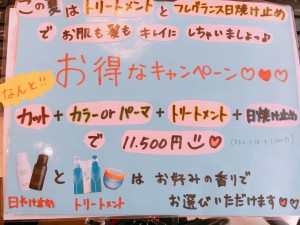 この夏はトリートメントとフレグランス日焼け止め
でお肌も髪もキレイにしちゃいましょっ♪
なんと!!
お得なキャンペーン♡♥♡
カット+カラーorパーマ+トリートメント+日焼け止め
で 11.500円
と は お好みの香りで
日やけ止め トリートメント お選びいただけます♡♡